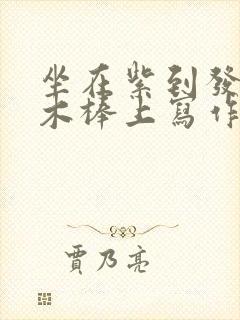 坐在紫到發
木棒上寫作
賈乃亮